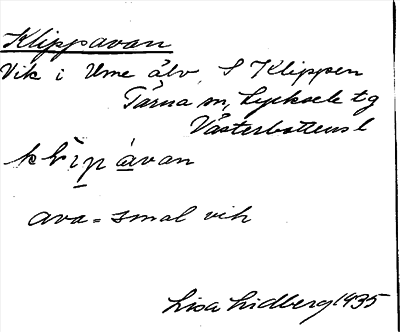 Klippavan
Vik i Ume älv, S Klippen
Tärna sn, Lycksele tg
Västerbottens l
avan
ava = smal vik
Lisa Lidberg 1935